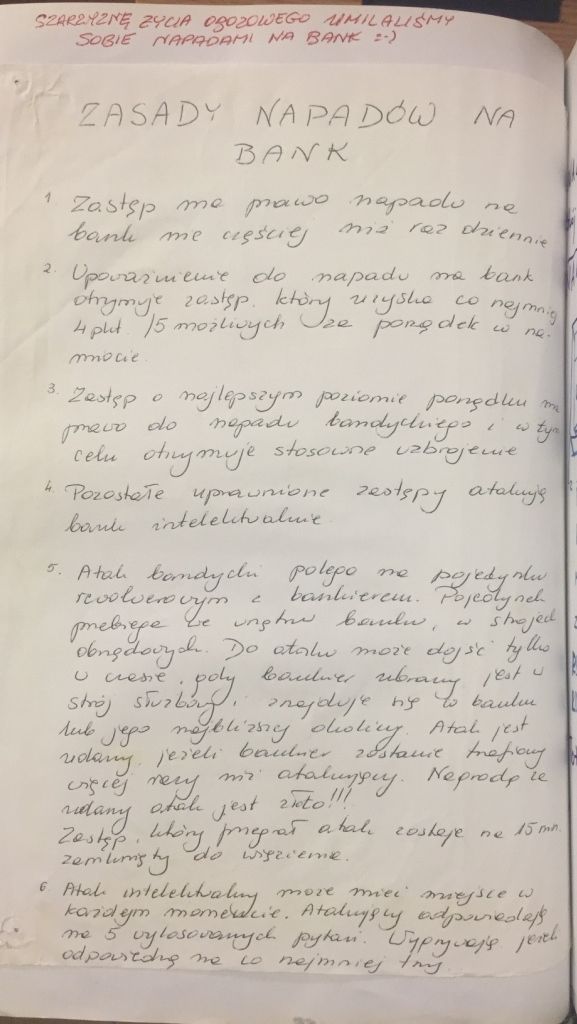 SZARZYZNĘ ŻYCIA OBOZOWEGO UMILALIŚMY
SOBIE NAPADAMI NA BANK :-)
ZASADY NAPADÓW NA
BANK
1. Zastęp ma prawo napadu na
bank nie częściej niż raz dziennie
2. Upoważnienie do napadu na bank
otrzymuje zastęp, który uzyska co najmniej
4 pkt. /5 możliwych za porządek w na-
miocie.
3. Zastęp o najlepszym poziomie porządku ma
prawo do napadu bandyckiego i w tym
celu otrzymuje stosowne uzbrojenie
4. Pozostałe uprawnione zastępy atakują
bank intelektualnie.
5. Atak bandycki polega na pojedynku
rewolwerowym z bankierem. Pojedynek
przebiega we wnętrzu banku, w strojach
obrzędowych. Do ataku może dojść tylko
w czasie, gdy bankier ubrany jest w
strój służbowy i znajduje się w banku
lub jego najbliższej okolicy. Atak jest
udany, jeżeli bankier zostanie trafiony
więcej razy niż atakujący. Nagrodą za
udany atak jest złoto!!!
Zastęp, który przegrał atak zostaje na 15 min.
zamknięty do więzienia.
6. Atak intelektualny może mieć miejsce w
każdym momencie. Atakujący odpowiadają
na 5 wylosowanych pytań. Wygrywają jeżeli
odpowiedzą na co najmniej trzy.